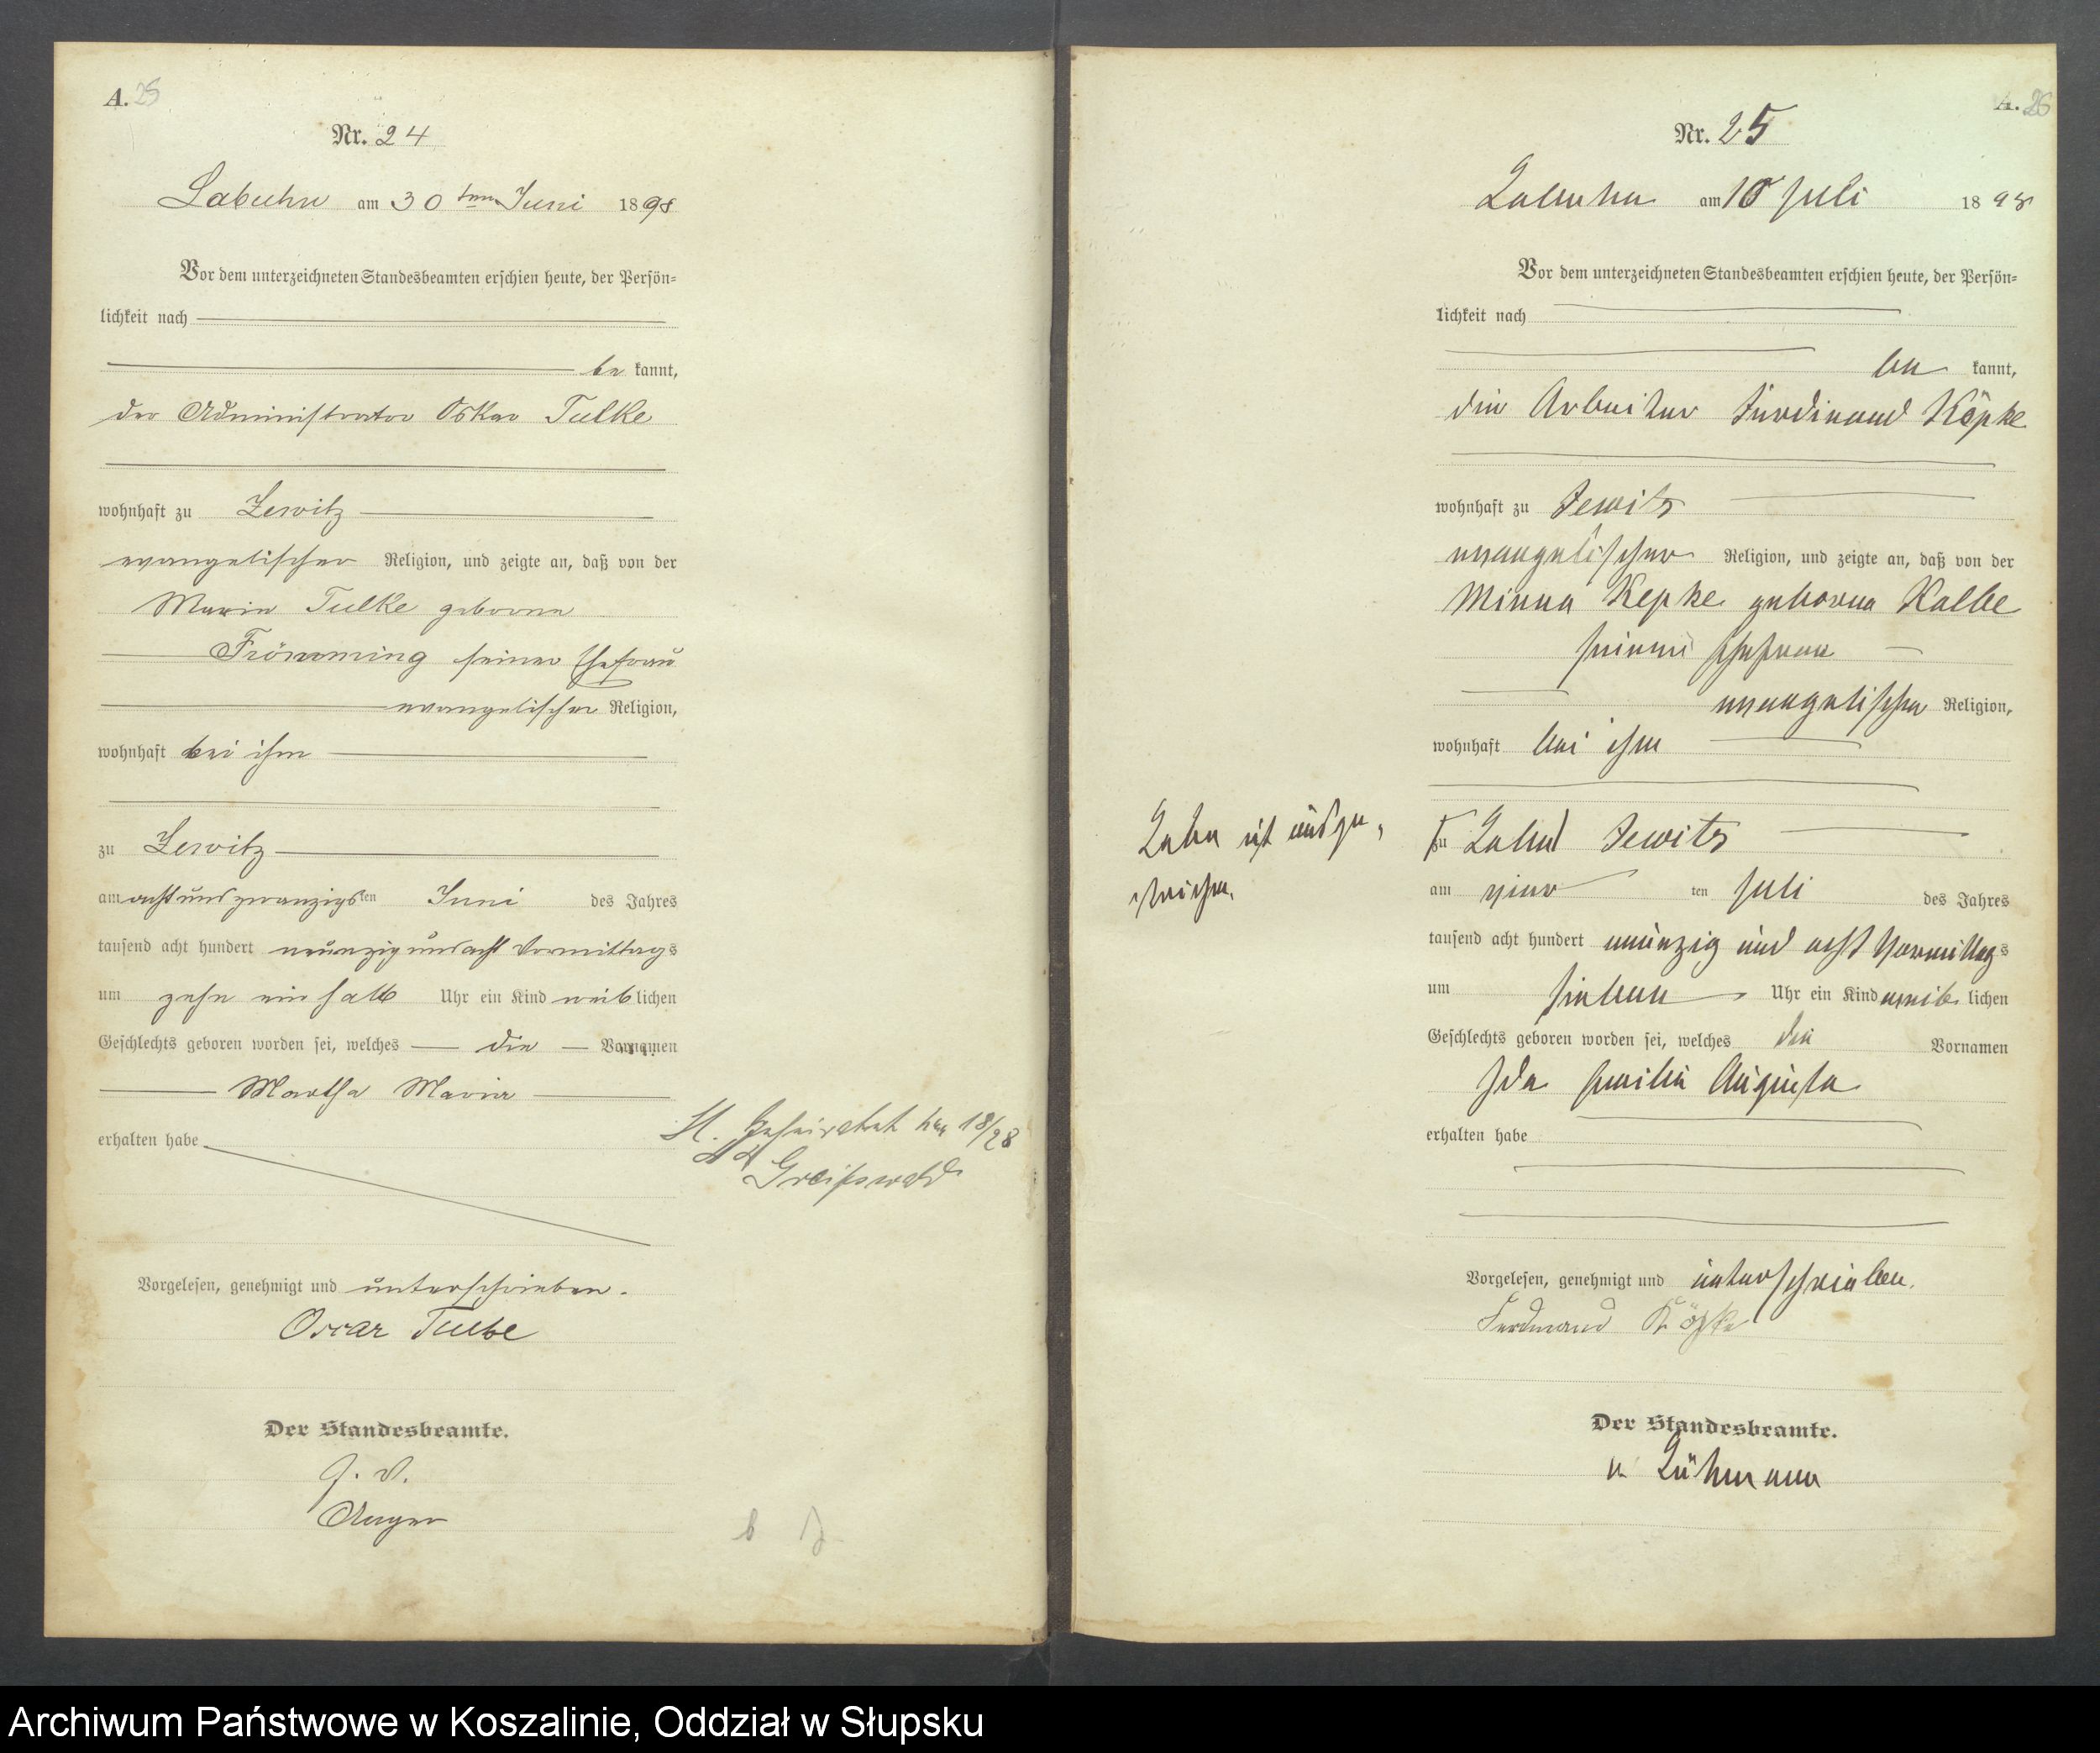 A. 25
Nr. 24
Labuhn am 30ten Juni 1898
Vor dem unterzeichneten Standesbeamten erschien heute, der Persön=
lichkeit nach
be kannt,
der Administrator Oskar Tulke
wohnhaft zu Zewitz
evangelischer Religion, und zeigte an, daß von der
Marie Tulke geborne
Frömming seiner Ehefrau
evangelischer Religion,
wohnhaft bei ihm
zu Zewitz
am acht und zwanzigsten Juni des Jahres
tausend acht hundert neunzig und acht Vormittags
um zehn ein halb Uhr ein Kind weiblichen
Geschlechts geboren worden sei, welches die Vornamen
Martha Maria
erhalten habe
Geheiratet 18/28
Greifswald
Vorgelesen, genehmigt und unterschrieben.
Oscar Tulke
Der Standesbeamte.
J. V.
A. 26
Nr. 25
Labuhn am 10 Juli 1898
Vor dem unterzeichneten Standesbeamten erschien heute, der Persön=
lichkeit nach
be kannt,
die Arbeiter Ferdinand Köpke
wohnhaft zu Zewitz
evangelischer Religion, und zeigte an, daß von der
Minna Kepke geborne Kalbe
seiner Ehefrau
evangelischer Religion,
wohnhaft bei ihm
zu Zewitz
am vier ten Juli des Jahres
tausend acht hundert neunzig und acht Vormittags
um sieben Uhr ein Kind weib lichen
Geschlechts geboren worden sei, welches die Vornamen
Ida Emilie Auguste
erhalten habe
ist ausge-
strichen.
Vorgelesen, genehmigt und unterschrieben.
Ferdinand Köpke
Der Standesbeamte.
v Lühmann
Archiwum Państwowe w Koszalinie, Oddział w Słupsku